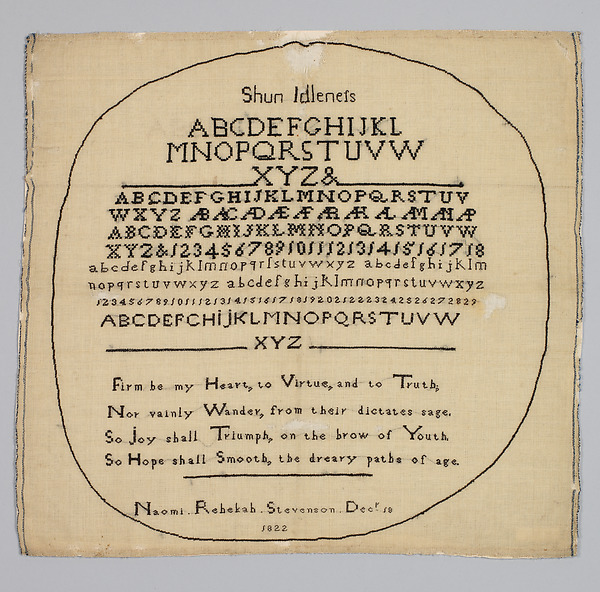 Shun Idleneſs
ABCDEFGHIJKL
MNOPQRSTUVW
XYZ&
ABCDEFGHIJKLMNOPQRSTUV
WXYZ
ABCDEFGHIJKLMNOPQRSTUVW
XYZ&123456789101112131415161718
abcdefghijklmnopqrſstuvwxyz abcdefghijklm
nopqrstuvwxyz abcdefghijklmnopqrſstuvwxyz
1234567891011121314151617181920212223242526272829
ABCDEFGHIJKLMNOPQRSTUVW
XYZ
Firm be my Heart, to Virtue, and to Truth;
Nor vainly Wander, from their dictates sage.
So Joy shall Triumph, on the brow of Youth.
So Hope shall Smooth, the dreary paths of age.
Naomi. Rebekah. Stevenson. Decr 18
1822